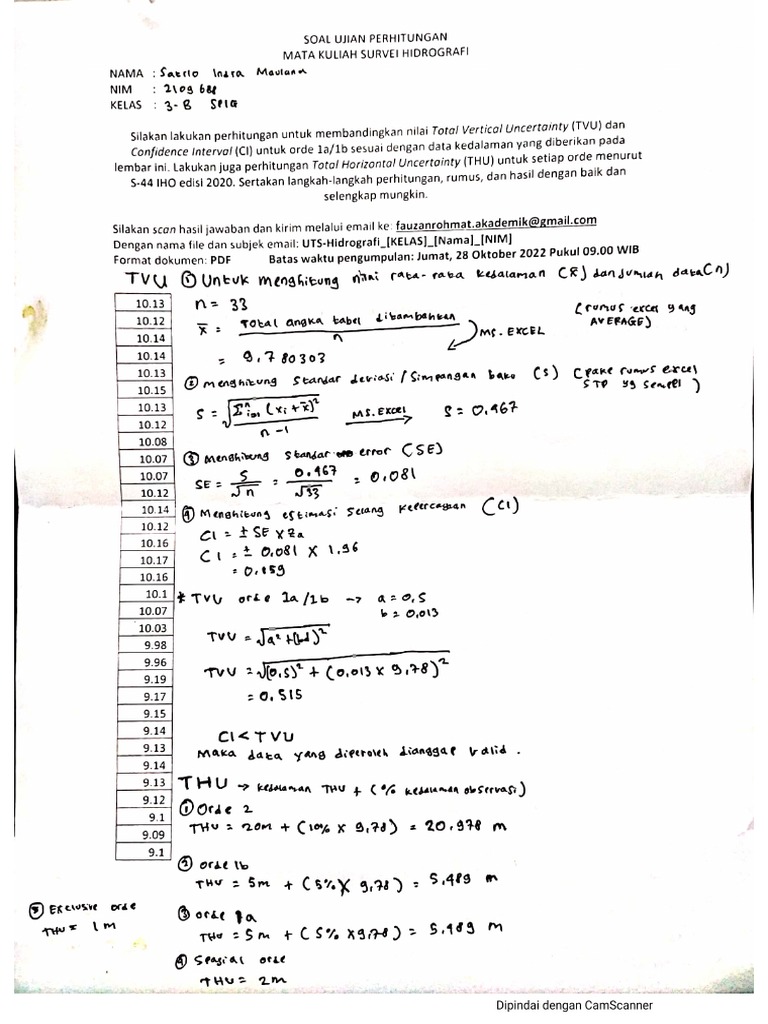 SOAL UJIAN PERHITUNGAN
MATA KULIAH SURVEI HIDROGRAFI
NAMA : Satrio Indra Maulana
NIM : 2109 688
KELAS : 3-B SPIG
Silakan lakukan perhitungan untuk membandingkan nilai Total Vertical Uncertainty (TVU) dan
Confidence Interval (CI) untuk orde 1a/1b sesuai dengan data kedalaman yang diberikan pada
lembar ini. Lakukan juga perhitungan Total Horizontal Uncertainty (THU) untuk setiap orde menurut
S-44 IHO edisi 2020. Sertakan langkah-langkah perhitungan, rumus, dan hasil dengan baik dan
selengkap mungkin.
Silakan scan hasil jawaban dan kirim melalui email ke: fauzanrohmat.akademik@gmail.com
Dengan nama file dan subjek email: UTS-Hidrografi_[KELAS]_[Nama]_[NIM]
Format dokumen: PDF Batas waktu pengumpulan: Jumat, 28 Oktober 2022 Pukul 09.00 WIB
TVU ① Untuk menghitung nilai rata-rata kedalaman (x̄) dan jumlah data (n)
10.13
10.12
10.14
10.14
10.13
10.15
10.13
10.12
10.08
10.07
10.07
10.12
10.14
10.12
10.16
10.17
10.16
10.1
10.07
10.03
9.98
9.96
9.19
9.17
9.15
9.14
9.13
9.14
9.13
9.12
9.1
9.09
9.1
n = 33
x̄ = Total angka tabel ditambahkan / n
MS. EXCEL
(rumus excel yang
AVERAGE)
= 9.780303
② Menghitung Standar deviasi / Simpangan baku (S) (pake rumus excel
STD yg sempel)
S = √(Σⁿᵢ₌₁ (xi + x̄)² / n-1) MS. EXCEL → S = 0.467
③ Menghitung Standar error (SE)
SE = S/√n = 0.467/√33 = 0.081
④ Menghitung estimasi selang kepercayaan (CI)
CI = ± SE x Za
CI = ± 0.081 x 1.96
= 0.159
* TVU orde 1a/1b → a = 0,5
b = 0,013
TVU = √a² + (bd)²
TVU = √(0,5)² + (0.013 x 9,78)²
= 0.515
CI < TVU
Maka data yang diperoleh dianggap valid.
THU → kedalaman THU + (% kedalaman observasi)
① Orde 2
THU = 20m + (10% x 9,78) = 20.978 m
② orde 1b
THU = 5m + (5% x 9,78) = 5,489 m
③ orde 1a
THU = 5m + (5% x 9,78) = 5.489 m
④ Spesial orde
THU = 2m
⑤ Exclusive orde
THU = 1m
Dipindai dengan CamScanner